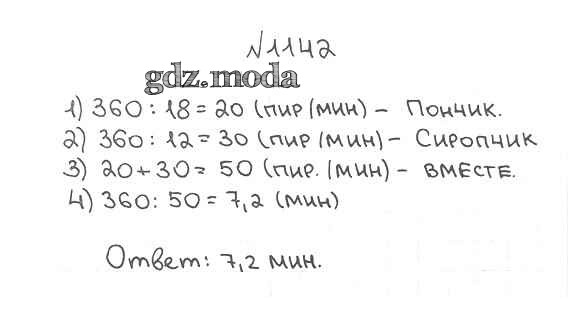 №1142
gdz.moda
1) 360 : 18 = 20 (пир/мин) - Пончик.
2) 360 : 12 = 30 (пир/мин) - Сиропчик
3) 20 + 30 = 50 (пир./мин) - вместе.
4) 360 : 50 = 7,2 (мин)
Ответ: 7,2 мин.